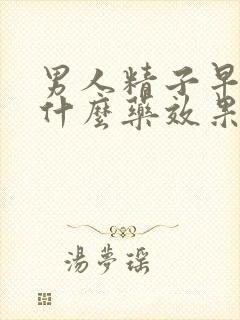 男人精子早
什麼藥效果
湯夢瑶